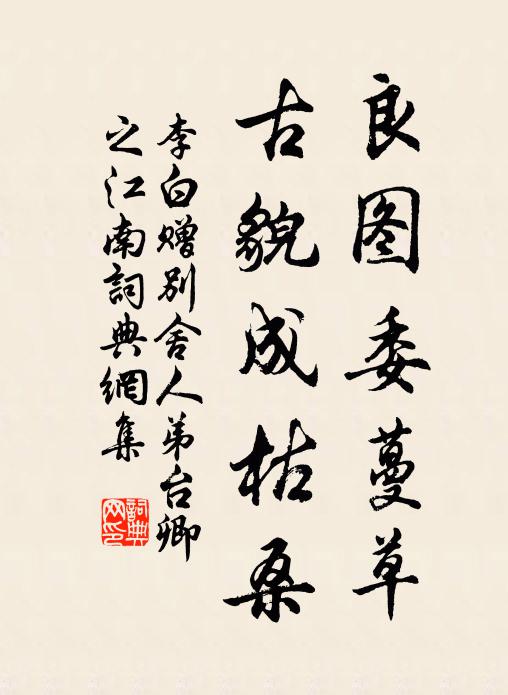 良图委蔓草
古貌成枯桑
李白赠别舍人弟台卿
之江南詞典網集
詞典
网印